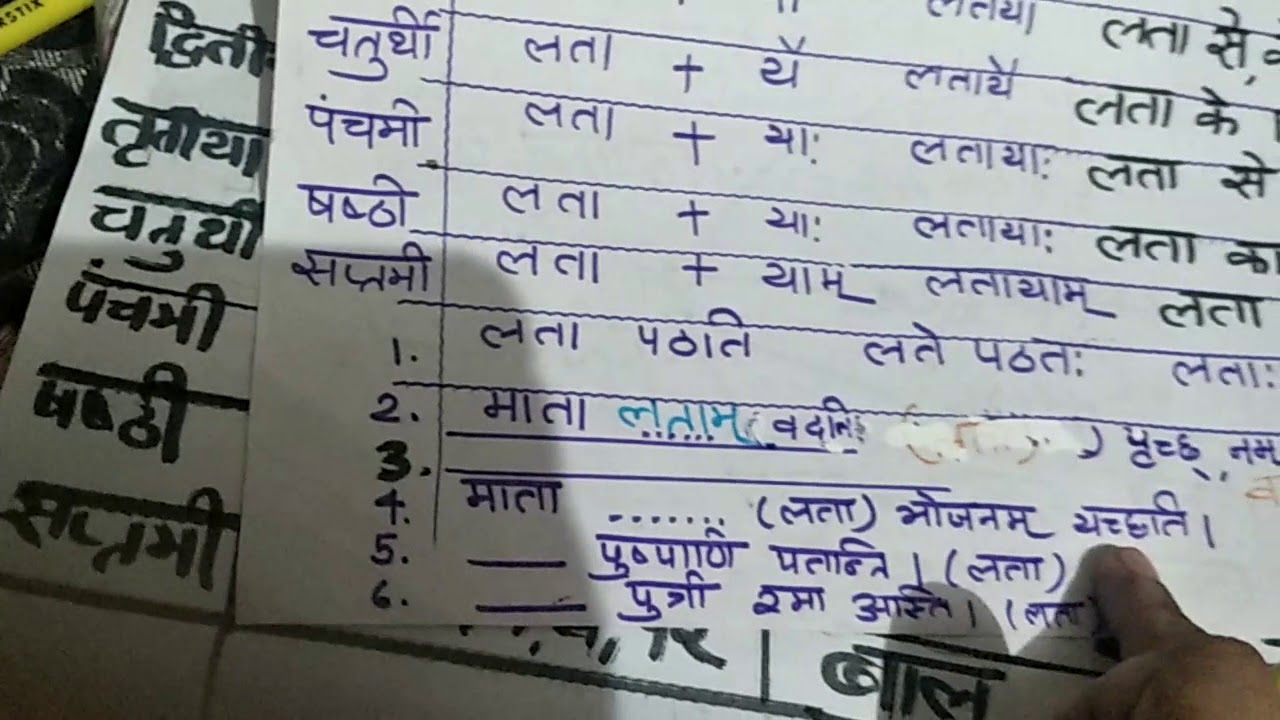 द्विती
तृतीया
चतुर्थी
पंचमी
षष्ठी
सप्तमी
लतया लता से,
चतुर्थी लता + यै लतायै लता के
पंचमी लता + याः लतायाः लता से
षष्ठी लता + याः लतायाः लता का
सप्तमी लता + याम् लतायाम् लता
1. लता पठति लते पठतः लताः
2. माता लताम् वदति पृच्छ् नम
3.
4. माता ....... (लता) भोजनम् यच्छति।
5. ___ पुष्पाणि पतन्ति। (लता)
6. ___ पुत्री रमा अस्ति। (लता
बाल